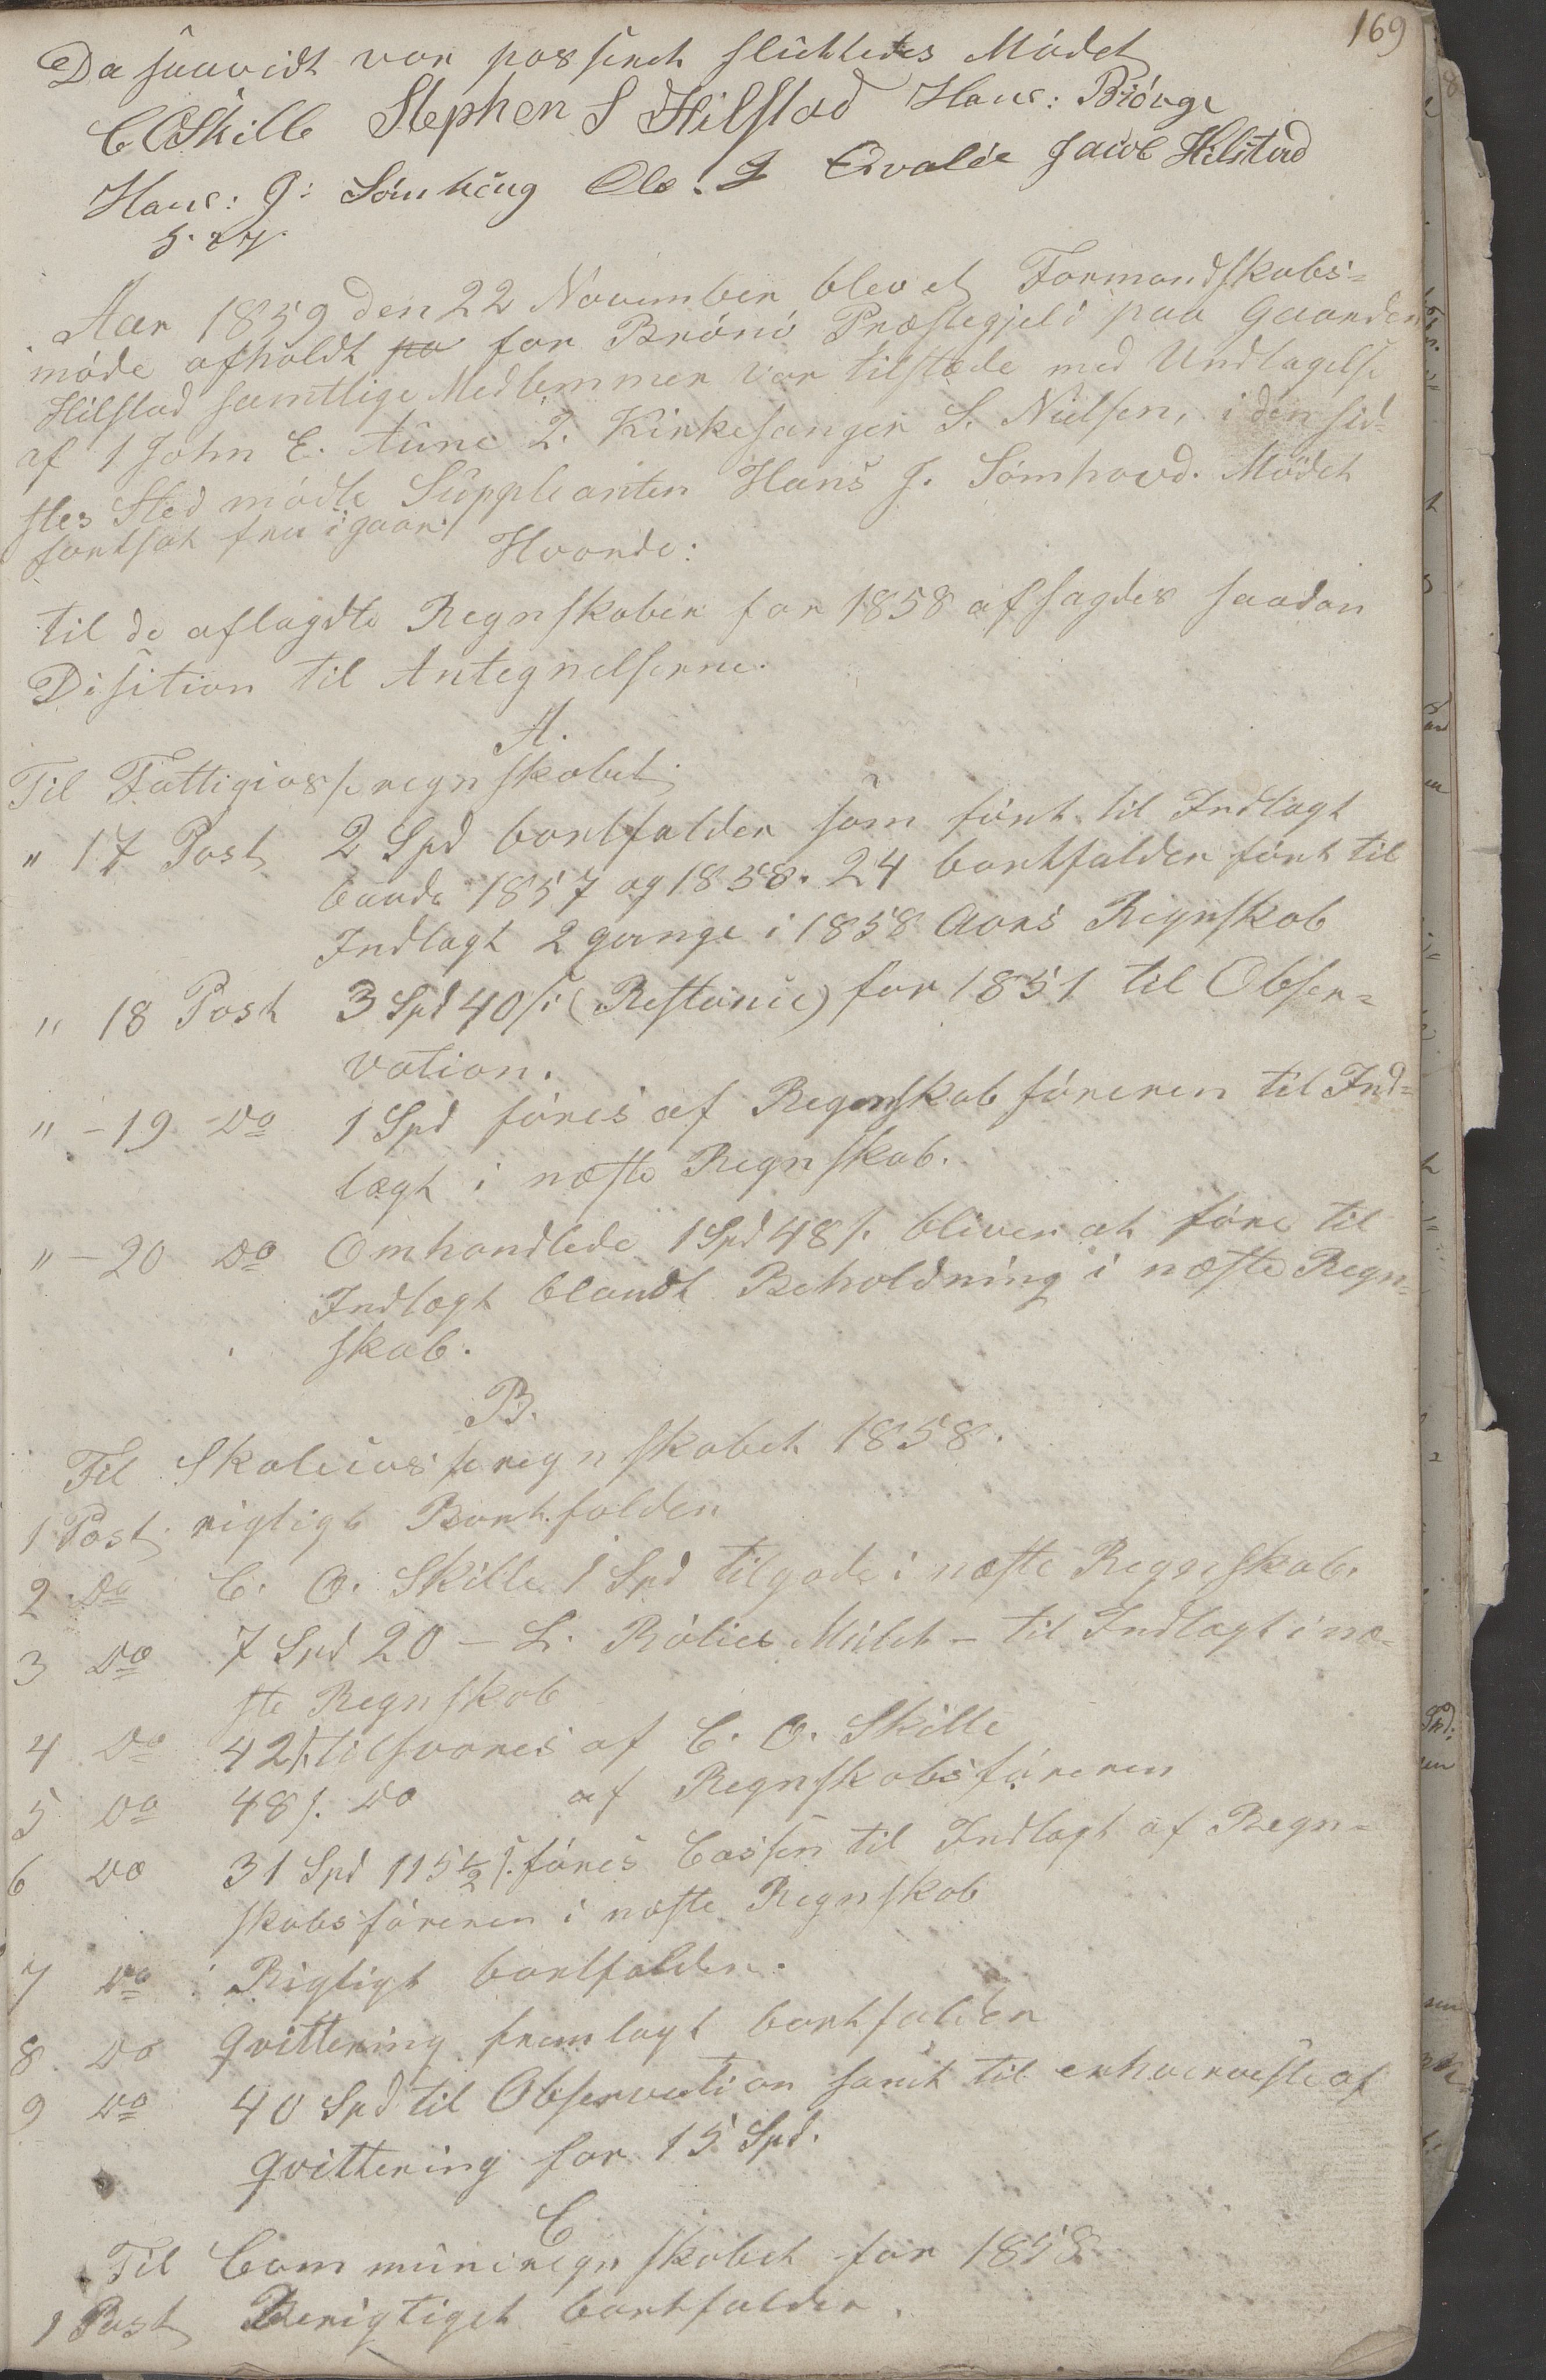 169
Da saavidt var passeret sluttedes Mødet
C O Skille Stephen S Hilstad Hans: Biönge
Hans: J: Sömhöug Ole. J Jacob Hilstad
Aar 1859 den 22 November blev et Formandskabs-
möde afholdt pa for Brönö Præstegjeld paa Gaarden
Hilstad samtlige Medlemmer var tilstæde med Undtagelse
af 1 John E. Aune 2. Kirkesanger S. Nielsen, i den sid-
stes Sted mödte Suppleanten Hans J. Sömhovd. Mödet
fortsat fra igaar.
Hvorda:
til de aflagdte Regnskaber for 1858 afsagdes saadan
Disition til Antegnelserne.
A.
Til Fattigcasseregnskabet
" 17 Post 2 Spd bortfalder som fört til Indtægt
baade 1857 og 1858. 24 bortfalder fört til
Indtægt 2 gange i 1858 Aars Regnskab
" 18 Post 3 Spd 40 s. (Restance) for 1851 til Obser-
vation.
" - 19 Do 1 Spd föres af Regenskabföreren til Ind-
tægt i næste Regnskab.
" - 20 Do Omhandlede 1 Spd 48 s. bliver at före til
Indtægt blandt Beholdning i næste Regn-
skab.
B.
Til Skolecasseregnskabet 1858.
1 Post rigtigt Bortfalder
2 Do C. O. Skille 1 Spd tilgode i næste Regneskab.
3 Do 7 Spd 20 - L. Mulct - til Indtægt i næ-
ste Regnskab
4 Do 42 s. tilsvares af C. O. Skille
5 Do 48 s. Do af Regnskabsföreren
6 Do 31 Spd 115 1/2 s. föres Cassen til Indtægt af Regn-
skabsföreren i næste Regnskab
7 Do Rigtigt bortfalder.
8 Do Qvittering fremlagt bortfalder
9 Do 40 Spd til Observation samt til erhvervelse af
Qvittering for 15 Spd.
C
Til Communeregnskabet for 1858
1 Post Berigtiget bortfalder.